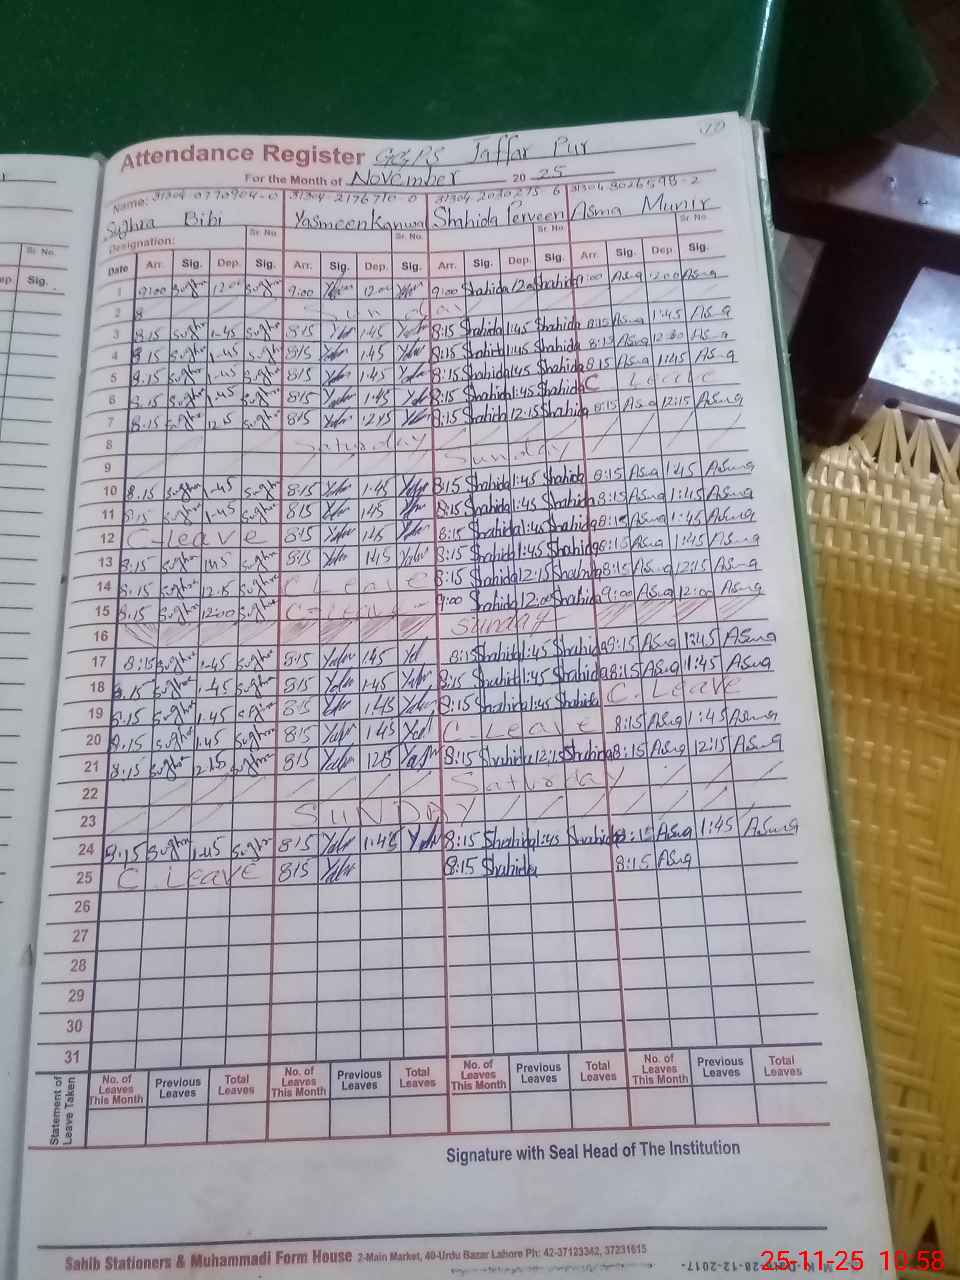 Attendance Register GGPS Jaffar Pur
For the Month of November 20 25
Name: 31304-0770904-0 31304-2176710-0 31304-2030275-6 31304-8026598-2
Sughra Bibi Yasmeen Kanwal Shahida Perveen Asma Munir
Designation: Sr. No. Sr. No. Sr. No. Sr. No.
Date Arr. Sig. Dep. Sig. Arr. Sig. Dep. Sig. Arr. Sig. Dep. Sig. Arr. Sig. Dep. Sig.
1 9:00 Sughra 12:00 Sughra 9:00 12:00 9:00 Shahida 12:00 Shahida 9:00 Asma 12:00 Asma
2 Sunday
3 8:15 Sughra 1:45 Sughra 8:15 1:45 8:15 Shahida 1:45 Shahida 8:15 Asma 1:45 Asma
4 8:15 Sughra 1:45 Sughra 8:15 1:45 8:15 Shahida 1:45 Shahida 8:15 Asma 12:30 Asma
5 8:15 Sughra 1:45 Sughra 8:15 1:45 8:15 Shahida 1:45 Shahida 8:15 Asma 1:45 Asma
6 8:15 Sughra 1:45 Sughra 8:15 1:45 8:15 Shahida 1:45 Shahida C Leave
7 8:15 Sughra 12:15 Sughra 8:15 12:45 8:15 Shahida 12:15 Shahida 8:15 Asma 12:15 Asma
8 Saturday
9 Sunday
10 8:15 Sughra 1:45 Sughra 8:15 1:45 8:15 Shahida 1:45 Shahida 8:15 Asma 1:45 Asma
11 8:15 Sughra 1:45 Sughra 8:15 1:45 8:15 Shahida 1:45 Shahida 8:15 Asma 1:45 Asma
12 C-Leave 8:15 1:45 8:15 Shahida 1:45 Shahida 8:15 Asma 1:45 Asma
13 8:15 Sughra 1:45 Sughra 8:15 1:45 8:15 Shahida 1:45 Shahida 8:15 Asma 1:45 Asma
14 8:15 Sughra 12:15 Sughra C Leave 8:15 Shahida 12:15 Shahida 8:15 Asma 12:15 Asma
15 8:15 Sughra 12:00 Sughra C-Leave 9:00 Shahida 12:00 Shahida 9:00 Asma 12:00 Asma
16 Sunday
17 8:15 Sughra 1:45 Sughra 8:15 1:45 8:15 Shahida 1:45 Shahida 8:15 Asma 1:45 Asma
18 8:15 Sughra 1:45 Sughra 8:15 1:45 8:15 Shahida 1:45 Shahida 8:15 Asma 1:45 Asma
19 8:15 Sughra 1:45 Sughra 8:15 1:45 8:15 Shahida 1:45 Shahida C. Leave
20 8:15 Sughra 1:45 Sughra 8:15 1:45 C-Leave 8:15 Asma 1:45 Asma
21 8:15 Sughra 12:15 Sughra 8:15 12:15 8:15 Shahida 12:15 Shahida 8:15 Asma 12:15 Asma
22 Saturday
23 SUNDAY
24 8:15 Sughra 1:45 Sughra 8:15 1:45 8:15 Shahida 1:45 Shahida 8:15 Asma 1:45 Asma
25 C. Leave 8:15 8:15 Shahida 8:15 Asma
26
27
28
29
30
31
Statement of Leave Taken
No. of Leaves This Month Previous Leaves Total Leaves No. of Leaves This Month Previous Leaves Total Leaves No. of Leaves This Month Previous Leaves Total Leaves No. of Leaves This Month Previous Leaves Total Leaves
Signature with Seal Head of The Institution
Sahib Stationers & Muhammadi Form House 2-Main Market, 40-Urdu Bazar Lahore Ph: 42-37123342, 37231615
25-11-25 10:58